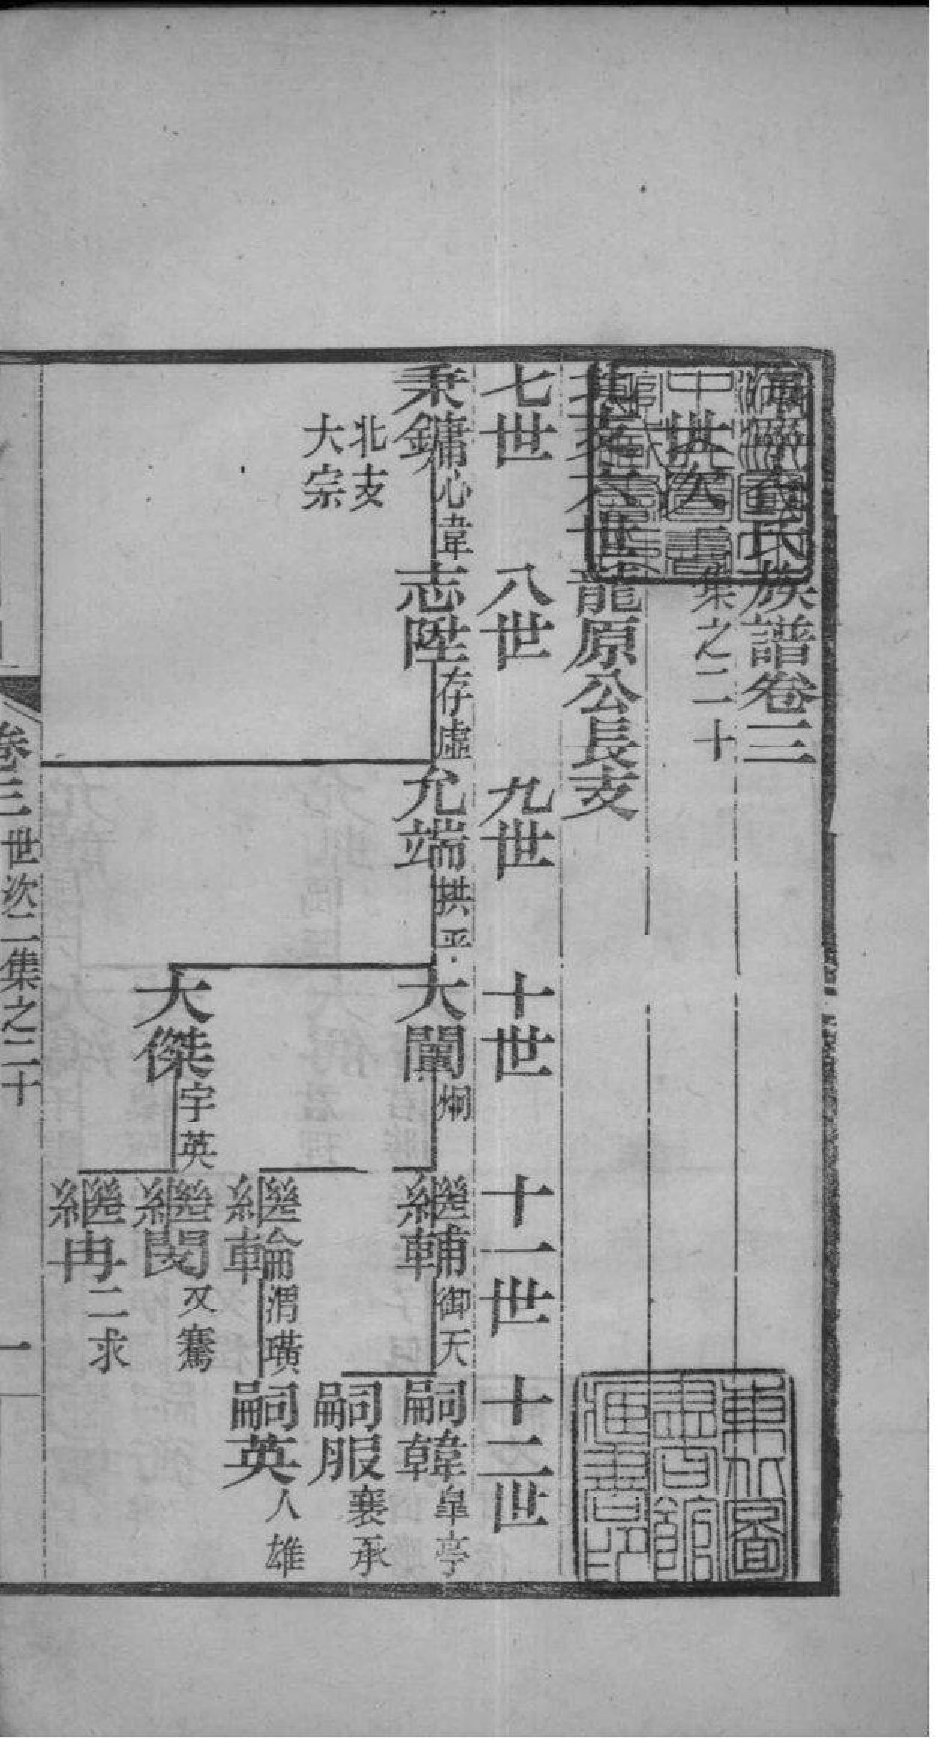 海寧查氏族譜卷三
世次二集之二十
北支六世龍原公長支
七世 八世 九世 十世 十一世 十二世
秉鏞心韋 志陞存虛 允端拱平 大闈炯 繼輔御天 嗣韓皐亭
北支
大宗
嗣服襄承
繼輪渭璜 嗣英人雄
大傑宇英 繼閔又騫
繼冉二求
卷三 世次二集之二十 一